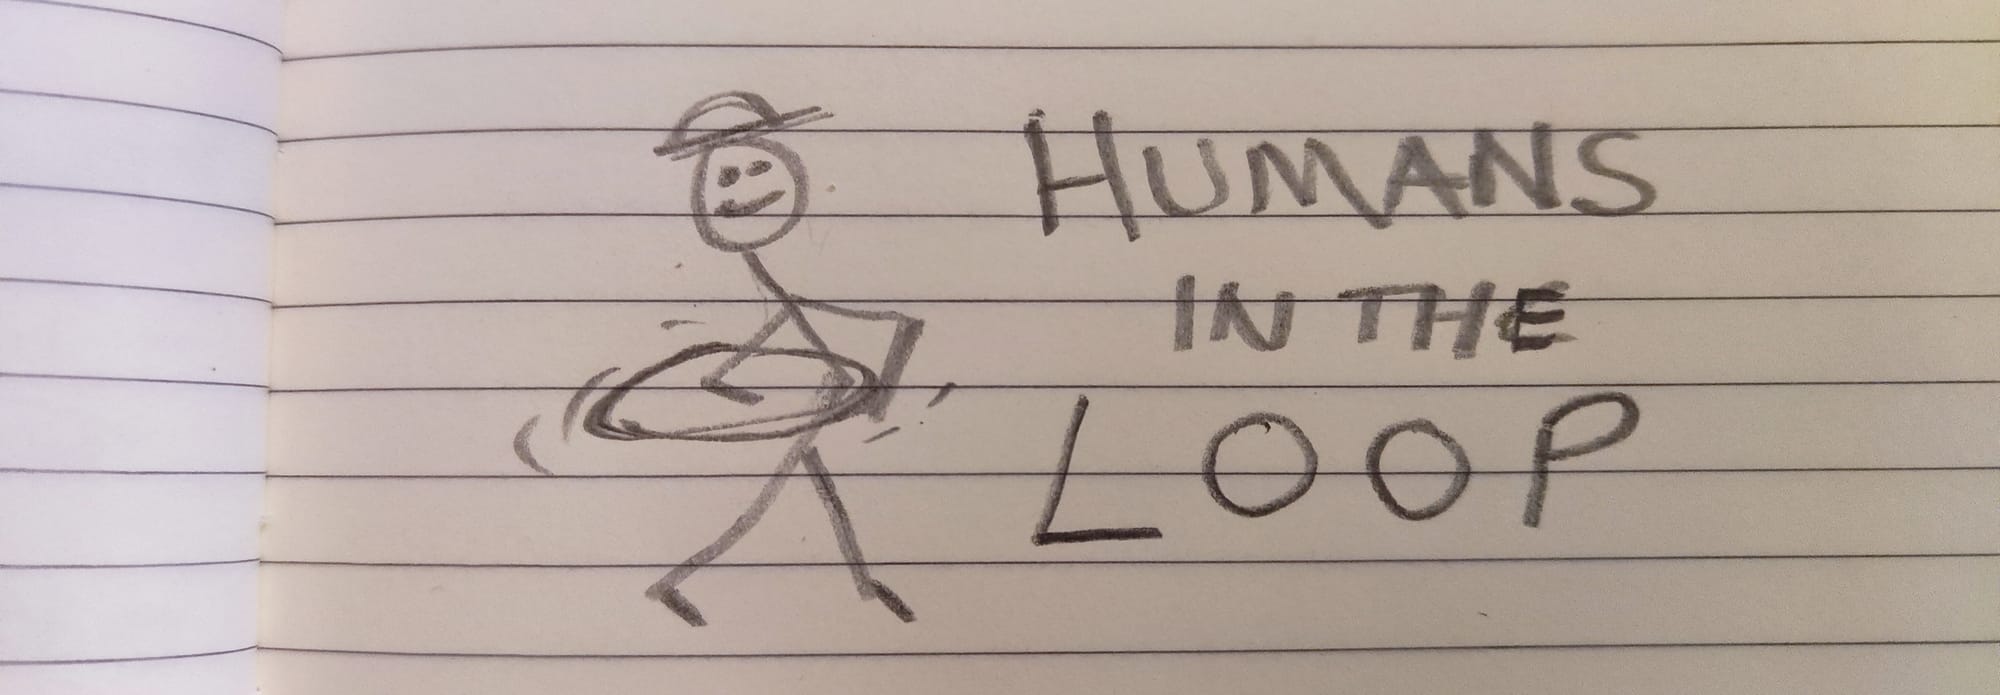 HUMANS
IN THE
LOOP